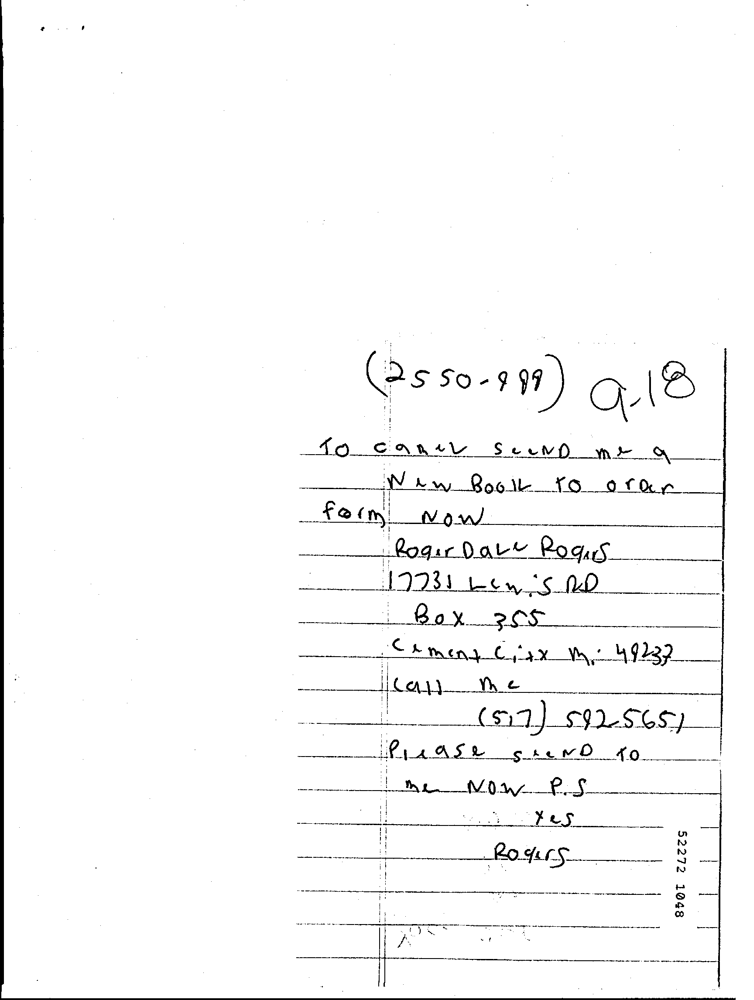 (2550-999) 9-18
To camel seend me a
New Book to order
form Now
Roger Dale Rogers
17731 Lewis RD
Box 355
Cement City Mi 49233
Call me
(517) 592-5651
Please seend to
me NOW P.S
Yes
Rogers
52272 1048